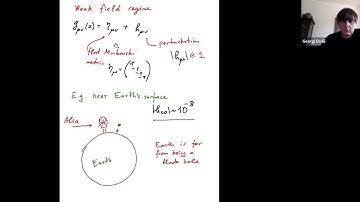 Weak field regime
g_μν(x) = η_μν + h_μν
perturbation
flat Minkowski
metric η_μν =
|h_μν| ≪ 1
E.g. near Earth's surface
|h_00| ~ 10^-8
Alia
Earth
Earth is far
from being a
black hole